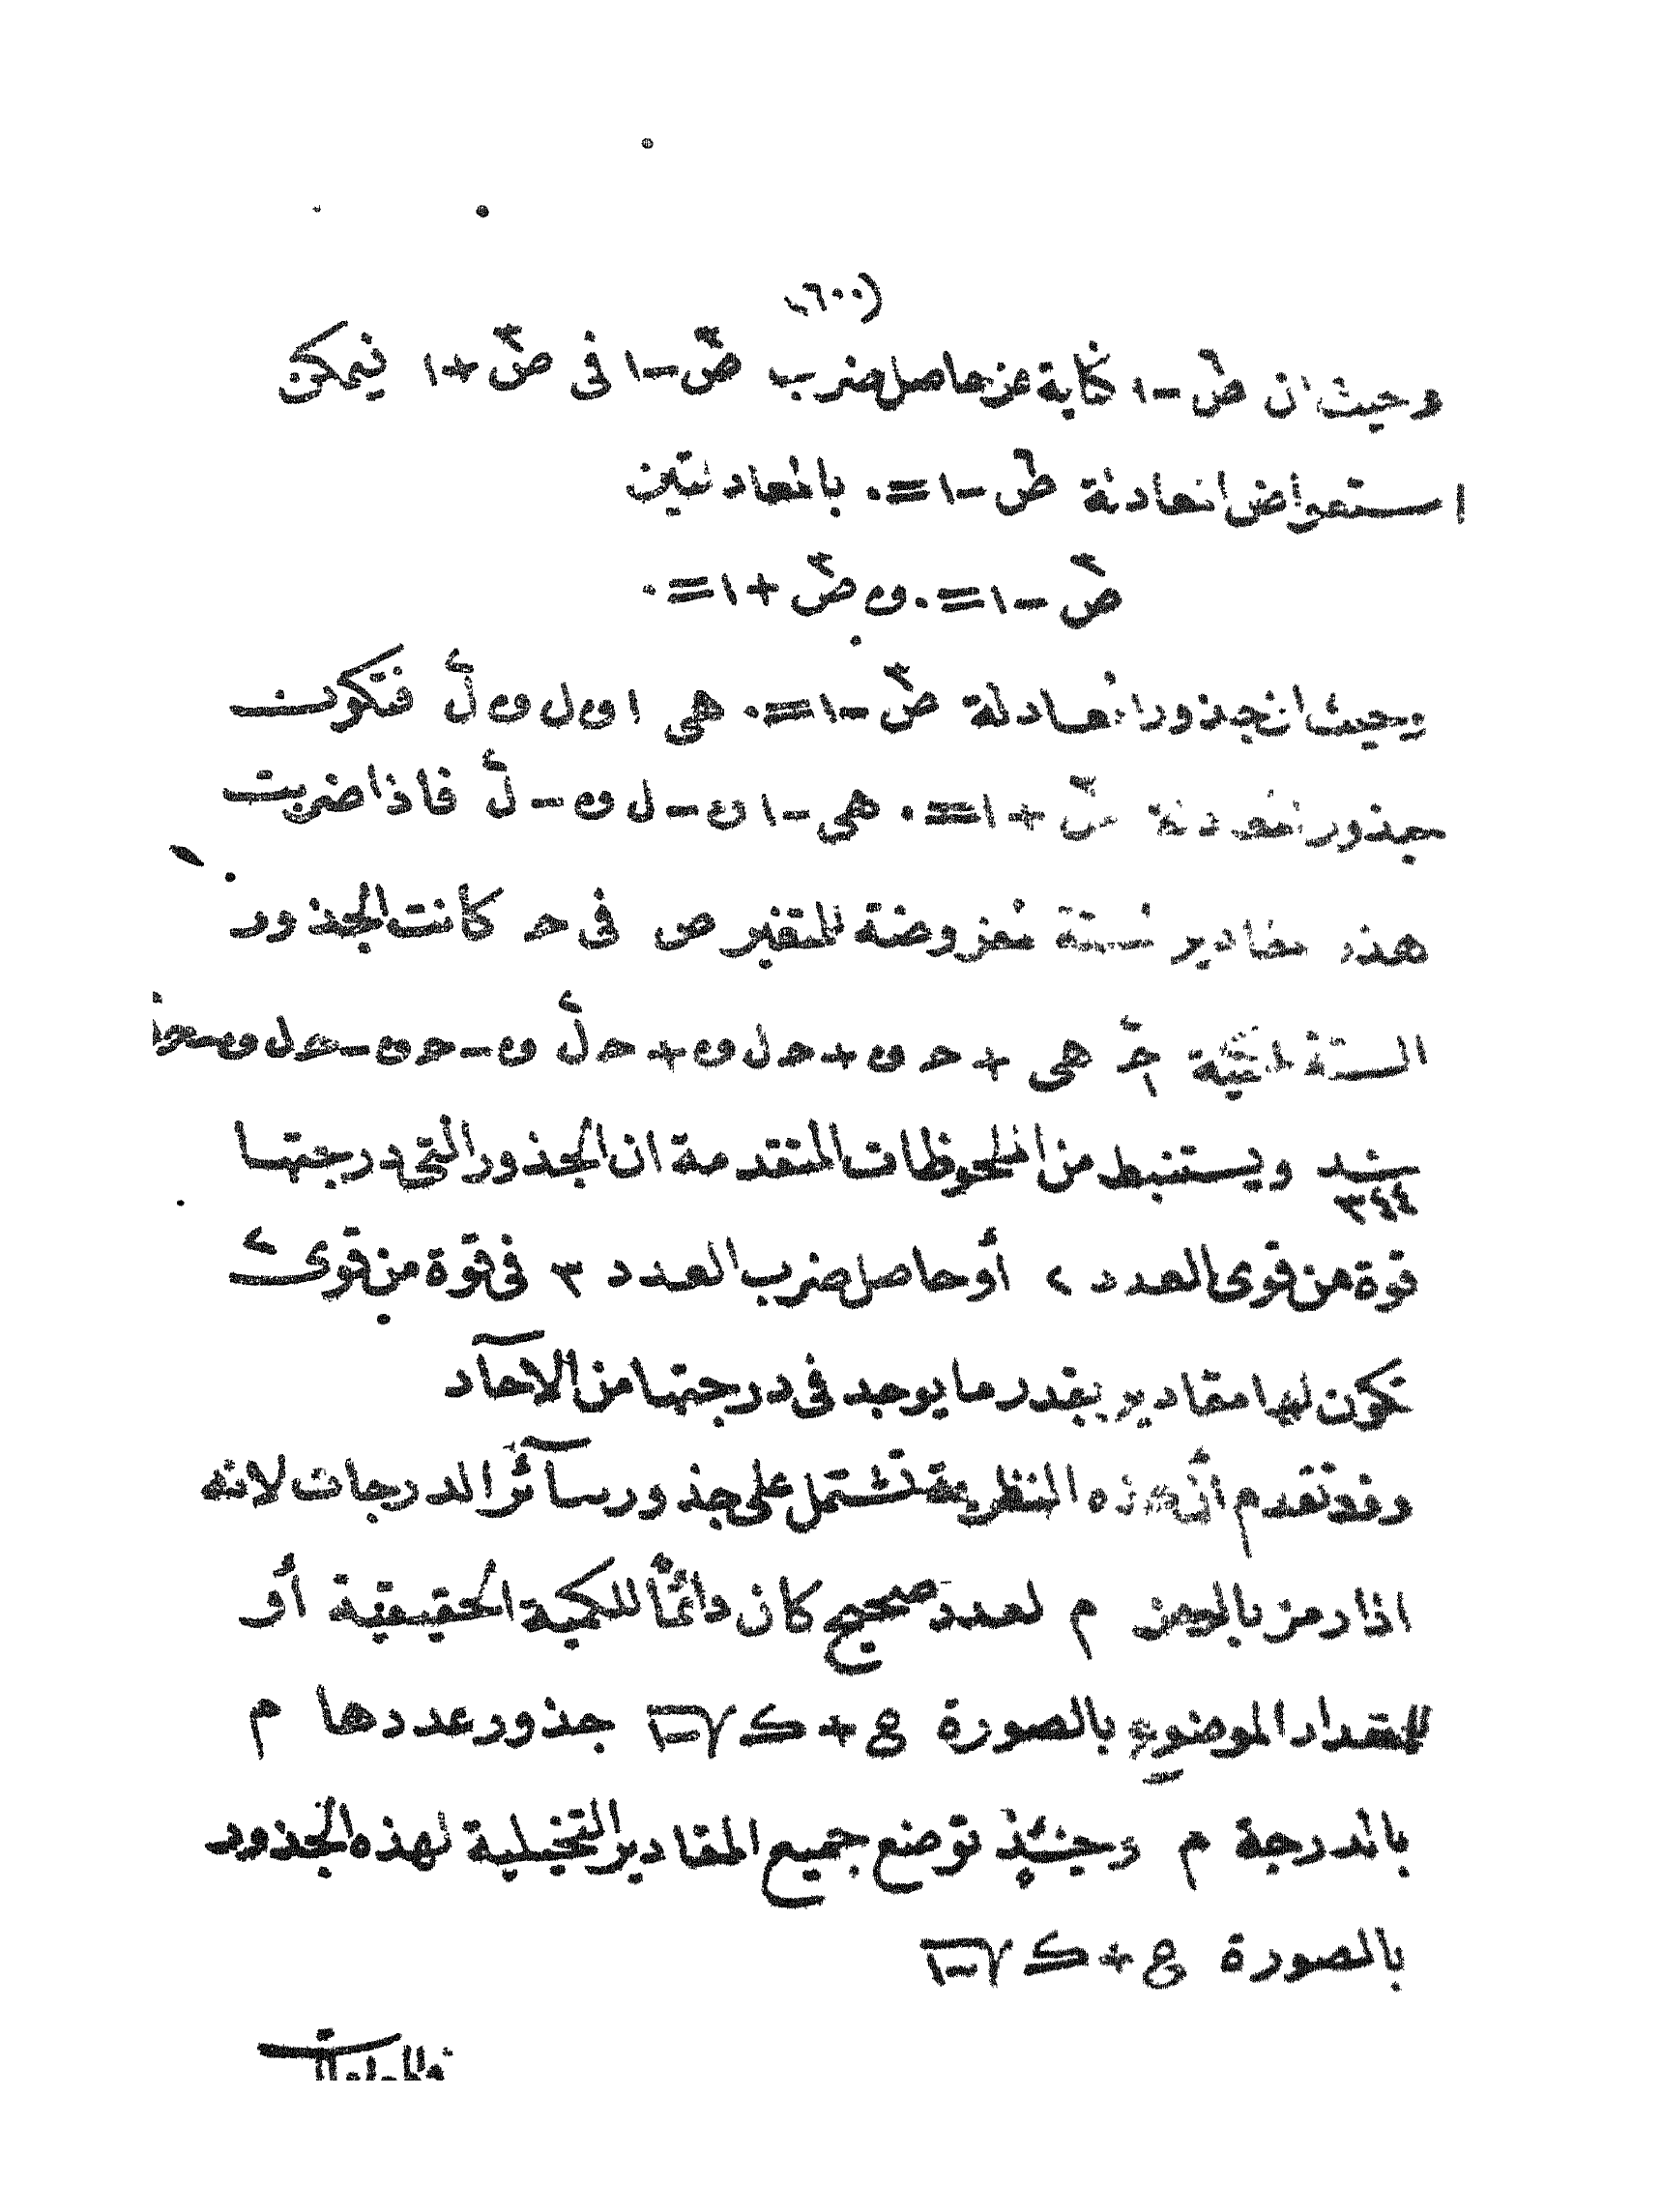 (٦٠٠)
وحيث ان ص٦ -١ كناية عن حاصل ضرب ص٣ -١ فى ص٣ +١ فيمكن
استعواض المعادلة ص٦ -١=٠ بالمعادلتين
ص٣ -١=٠ و ص٣ +١=٠
وحيث ان جذور المعادلة ص٣ -١=٠ هى ١ و ل و ل٢ فتكون
جذور المعادلة ص٣ +١=٠ هى -١ و -ل و -ل٢ فاذا ضربت
هذه مقادير ستة مفروضة للمتغير ص فى حـ كانت الجذور
الستة لكمية هى +حـ و +حـ ل و +حـ ل٢ و -حـ و -حـ ل و -حـ
سند ويستنبط من الملحوظات المتقدمة ان الجذور التى درجتها
٣٤٤
قوة من قوى العدد ٢ أو حاصل ضرب العدد ٣ فى قوة من قوى ٢
تكون لها مقادير بقدر ما يوجد فى درجتها من الآحاد
وقد تقدم أن هذه النظرية تشتمل على جذور سائر الدرجات لانه
اذا رمز بالرمز م لعدد صحيح كان دائمًا للكمية الحقيقية أو
للمقدار الموضوع بالصورة ع + ك √-١ جذور عددها م
بالدرجة م وحينئذ توضع جميع المقادير التخيلية لهذه الجذور
بالصورة ع + ك √-١